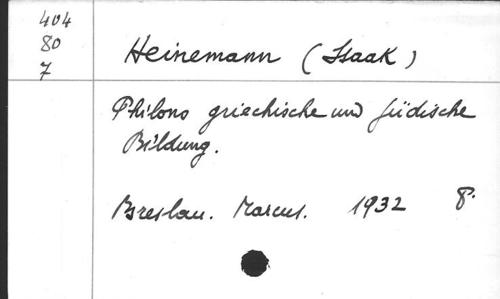 404
80
7
Heinemann (Isaak)
Philons griechische und jüdische
Bildung.
Breslau. Marcus. 1932 8°.